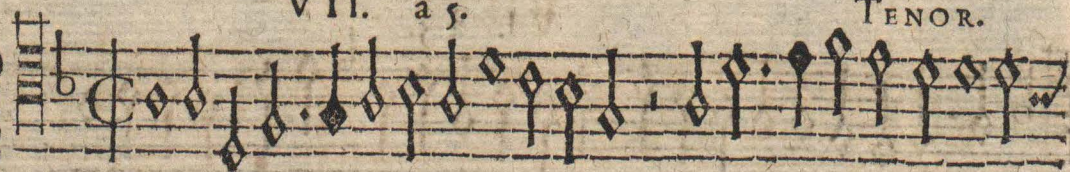 VII. a 5. TENOR.